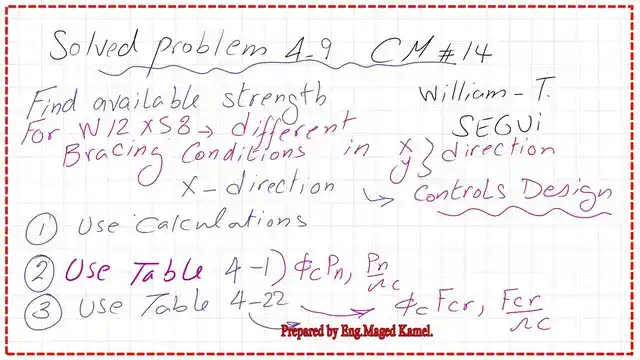 Solved problem 4-9 CM#14
Find available strength William-T.
For W12X58 → different SEGUi
Bracing Conditions in x y } direction
X-direction ↳ Controls Design
① Use Calculations
② Use Table 4-1) ϕcPn, Pn/Ωc
③ Use Table 4-22 → ϕcFcr, Fcr/Ωc
Prepared by Eng.Maged Kamel.